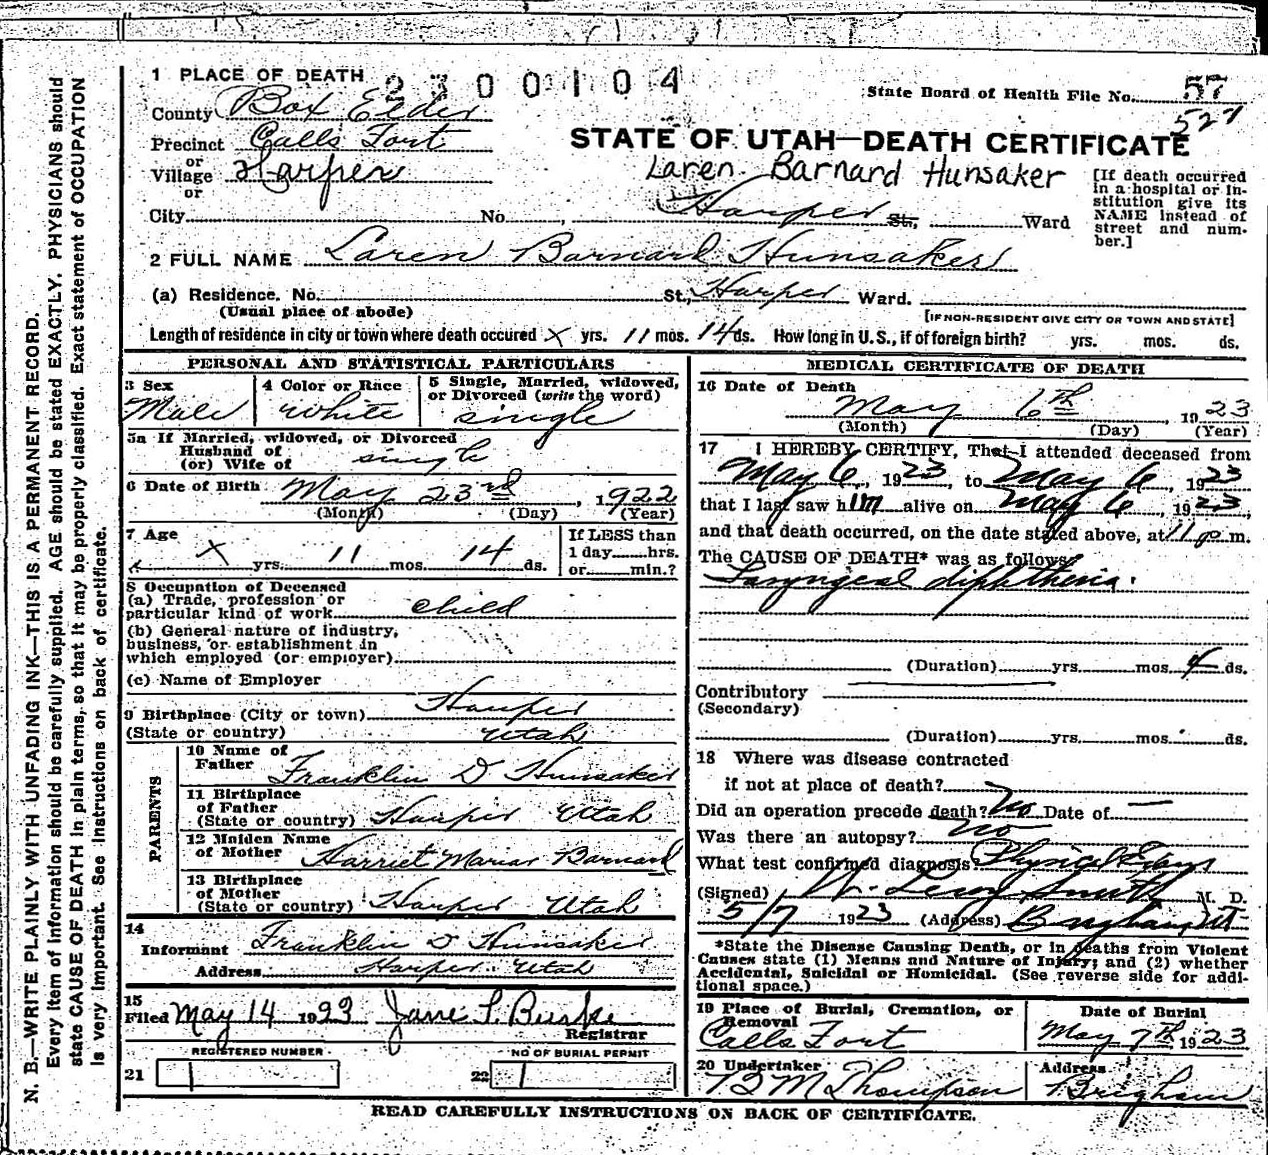 1 PLACE OF DEATH 2300104
State Board of Health File No. 57
527
County Box Elder
Precinct Calls Fort
or
Village Harper
or
STATE OF UTAH—DEATH CERTIFICATE
Laren Barnard Hunsaker
[If death occurred in a hospital or institution give its NAME instead of street and number.]
City No. , Harper St., Ward
2 FULL NAME Laren Barnard Hunsaker
(a) Residence. No. St., Harper Ward.
(Usual place of abode) [IF NON-RESIDENT GIVE CITY OR TOWN AND STATE]
Length of residence in city or town where death occured x yrs. 11 mos. 14 ds. How long in U.S., if of foreign birth? yrs. mos. ds.
PERSONAL AND STATISTICAL PARTICULARS
3 Sex
Male
4 Color or Race
White
5 Single, Married, widowed,
or Divorced (write the word)
single
5a If Married, widowed, or Divorced
Husband of
(or) Wife of single
6 Date of Birth May 23rd, 1922
(Month) (Day) (Year)
7 Age
x yrs. 11 mos. 14 ds.
If LESS than
1 day hrs.
or min.?
8 Occupation of Deceased
(a) Trade, profession or
particular kind of work child
(b) General nature of industry,
business, or establishment in
which employed (or employer)
(c) Name of Employer
9 Birthplace (City or town) Harper
(State or country) Utah
PARENTS
10 Name of
Father Franklin D Hunsaker
11 Birthplace
of Father
(State or country) Harper Utah
12 Maiden Name
of Mother Harriet Mariar Barnard
13 Birthplace
of Mother
(State or country) Harper Utah
14
Informant Franklin D Hunsaker
Address Harper Utah
15
Filed May 14 1923 Jane L. Burke
Registrar
REGISTERED NUMBER
21
NO OF BURIAL PERMIT
22
MEDICAL CERTIFICATE OF DEATH
16 Date of Death
May 6th 1923
(Month) (Day) (Year)
17 I HEREBY CERTIFY, That I attended deceased from
May 6, 1923 to May 6, 1923
that I last saw him alive on May 6, 1923,
and that death occurred, on the date stated above, at 11 p m.
The CAUSE OF DEATH* was as follows:
Laryngeal diphtheria.
(Duration) yrs. mos. 4 ds.
Contributory
(Secondary)
(Duration) yrs. mos. ds.
18 Where was disease contracted
if not at place of death?
Did an operation precede death? No Date of —
Was there an autopsy? no
What test confirmed diagnosis? Physical
(Signed) W. Leroy Smith M. D.
5/7 1923 (Address) Brigham, Ut
*State the Disease Causing Death, or in deaths from Violent
Causes state (1) Means and Nature of Injury; and (2) whether
Accidental, Suicidal or Homicidal. (See reverse side for additional space.)
19 Place of Burial, Cremation, or
Removal
Calls Fort
Date of Burial
May 7th 1923
20 Undertaker
B M Thompson
Address
Brigham
READ CAREFULLY INSTRUCTIONS ON BACK OF CERTIFICATE.
N. B.—WRITE PLAINLY WITH UNFADING INK—THIS IS A PERMANENT RECORD.
Every item of information should be carefully supplied. AGE should be stated EXACTLY. PHYSICIANS should
state CAUSE OF DEATH in plain terms, so that it may be properly classified. Exact statement of OCCUPATION
is very important. See instructions on back of certificate.